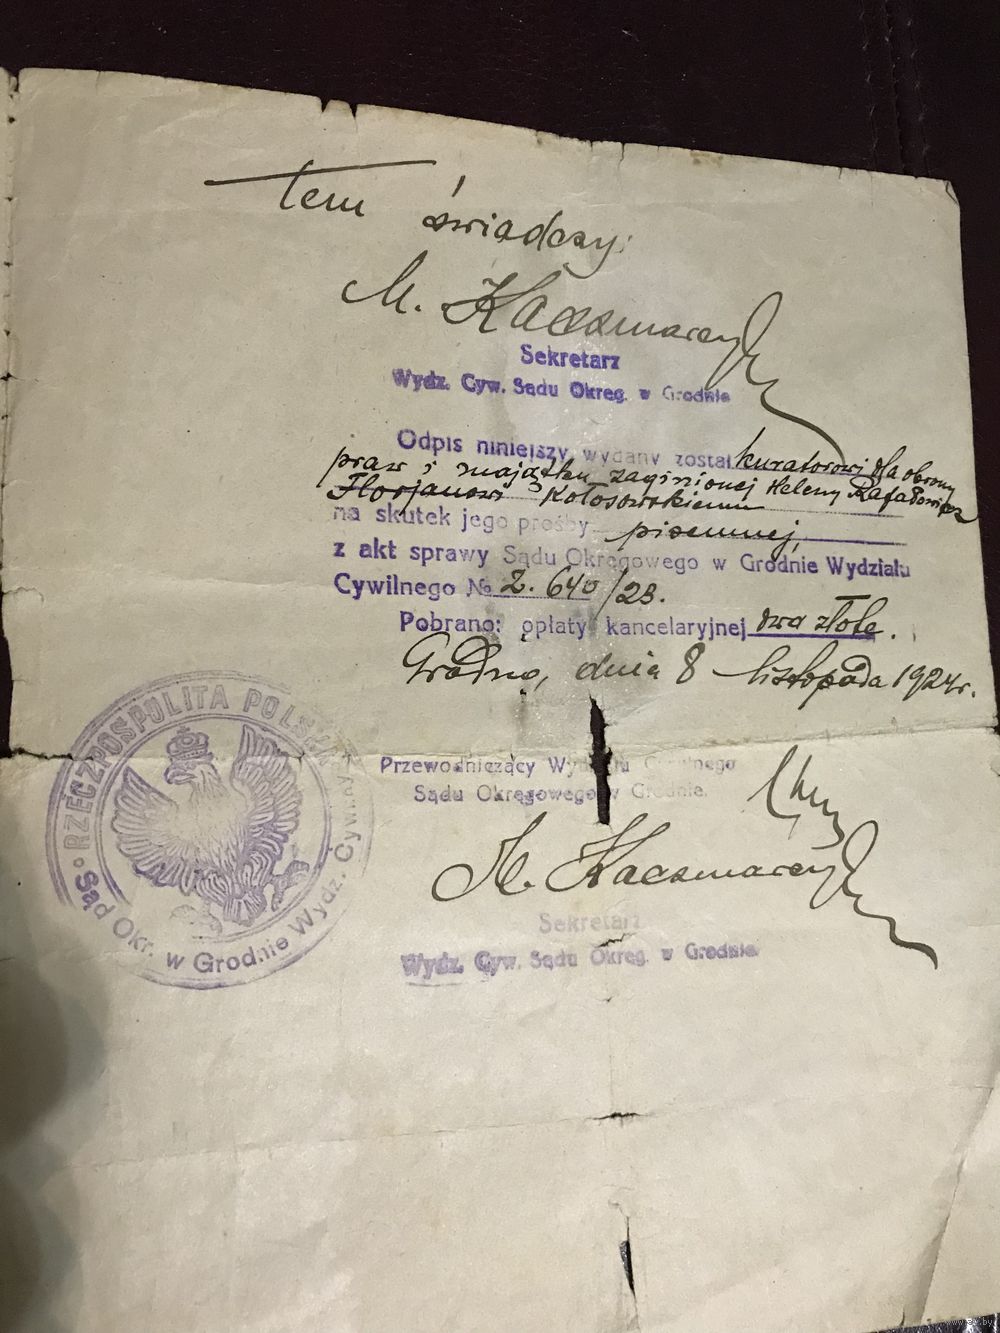 tem świadczy:
M. Kaczmarczyk
Sekretarz
Wydz. Cyw. Sądu Okręg. w Grodnie
Odpis niniejszy wydany został kuratorowi dla obrony
praw i majątku zaginionej Heleny Rafałowicz
Florjanowi Kołosowskiemu
na skutek jego prośby pisemnej,
z akt sprawy Sądu Okręgowego w Grodnie Wydziału
Cywilnego № Z. 640/23.
Pobrano: opłaty kancelaryjnej dwa złote.
Grodno, dnia 8 listopada 1924 r.
RZECZPOSPOLITA POLSKA
Sąd Okr. w Grodnie Wydz. Cywilny
Przewodniczący Wydziału Cywilnego
Sądu Okręgowego w Grodnie.
M. Kaczmarczyk
Sekretarz
Wydz. Cyw. Sądu Okręg. w Grodnie